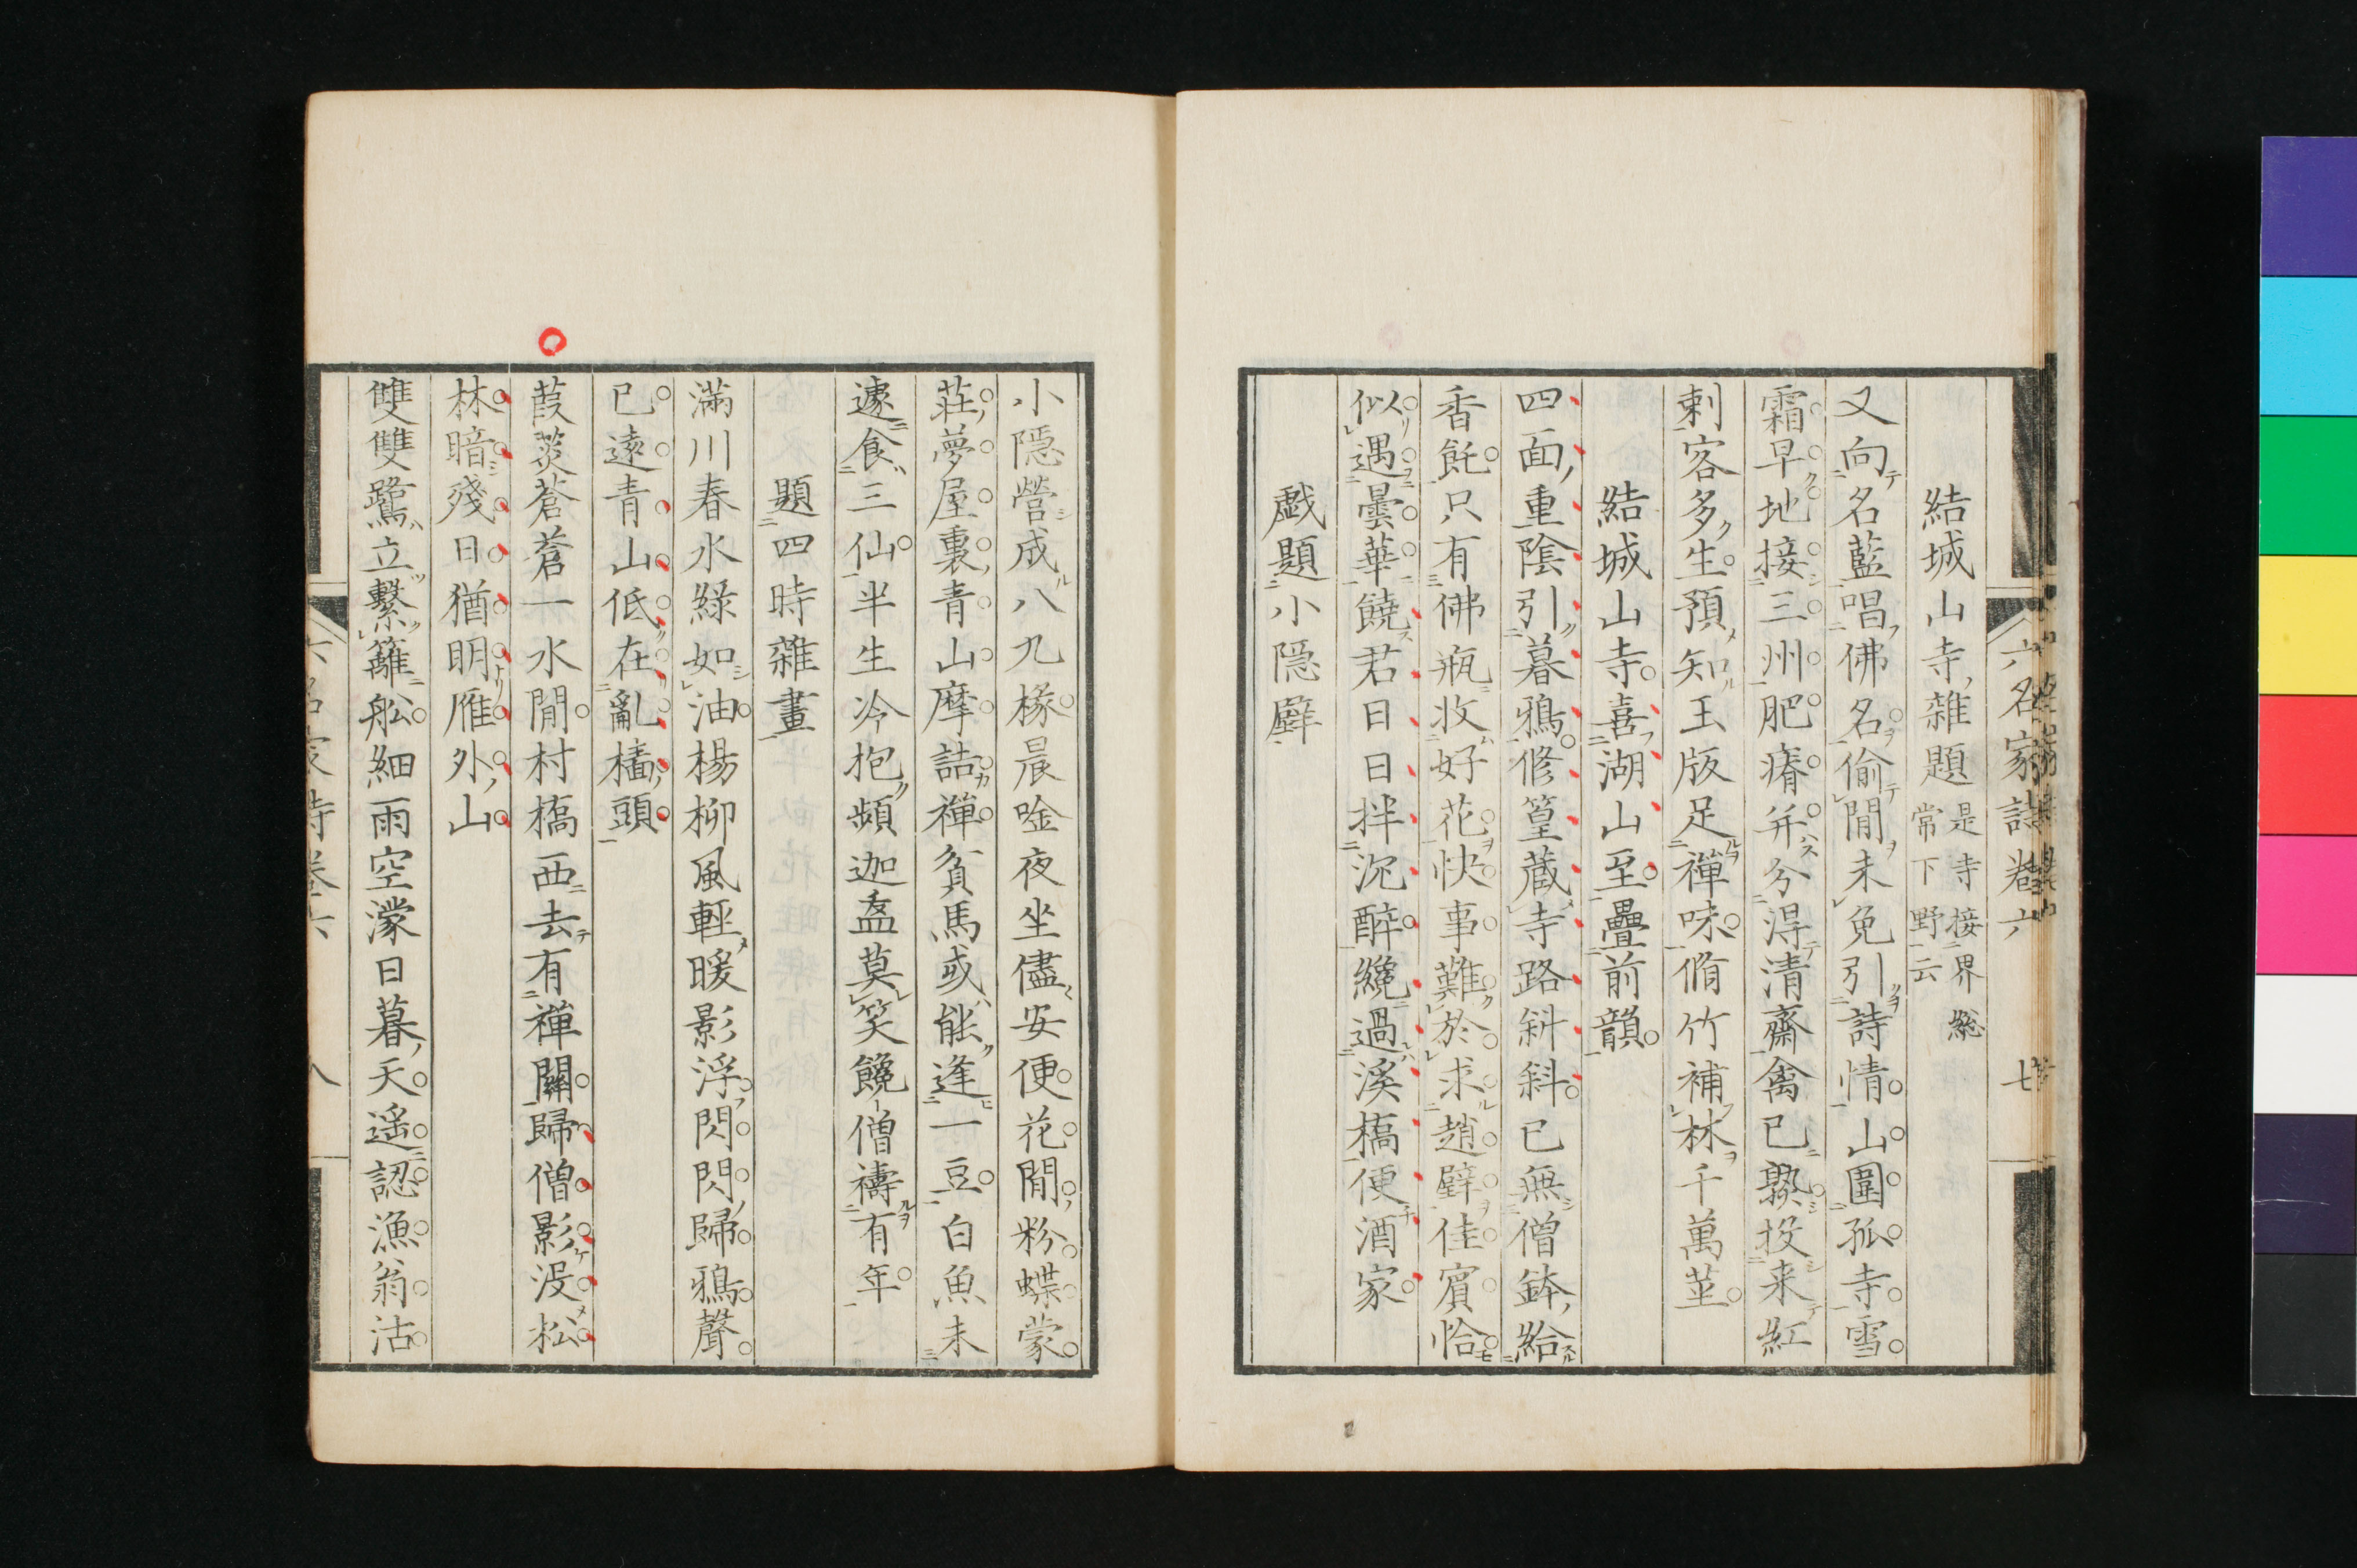 六名家詩卷六 七
結城山寺雜題 是寺接界總常下野云
又向名藍唱佛名偷閒未免引詩情山圍孤寺雪
霜早地接三州肥瘠分得清齋禽已熟投来紅
刺客多生預知玉版足禪味脩竹補林千萬莖
結城山寺喜湖山至疊前韻
四面重陰引暮鴉修篁藏寺路斜斜已無僧鉢給
香飥只有佛瓶收好花快事難於求趙璧佳賓恰
似遇曇華饒君日日拌沉醉纔過溪橋便酒家
戯題小隠壁
小隠營成八九椽晨唫夜坐儘安便花閒粉蝶蒙
莊夢屋裏青山摩詰禪貧馬或能逢一豆白魚未
遽食三仙半生冷抱頻迦盋莫笑饞僧禱有年
題四時雜畫
滿川春水綠如油楊柳風輕暖影浮閃閃歸鴉聲
已遠青山低在亂檣頭
葭菼蒼蒼一水閒村橋西去有禪關歸僧影没松
林暗殘日猶明雁外山
雙雙鷺立繫籬舩細雨空濛日暮天遥認漁翁沽
六名家詩卷六 八